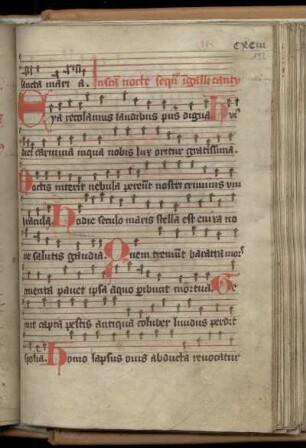 CXCIII
sancta mari a. In sca nocte seqn i galli cantu
Eya recolamus laudibus piis digna h
diei carmina in qua nobis lux oritur gratissima.
Noctis interit nebula pereunt nostri criminis um
bracula. Hodie seculo maris stella est enixa no
ve salutis gaudia. Quem tremunt baratra mors
cruenta pavet ipsa a quo peribunt mortua. Ge
mit capta pestis antiqua coluber lividus perdit
spolia. Homo lapsus ovis abducta revocatur